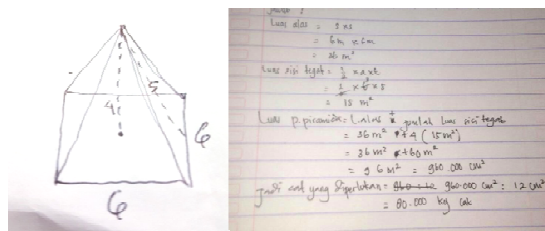 4
5
6
6
Luas alas = s x s
= 6m x 6m
= 36 m²
Luas sisi tegak = 1/2 x a x t
= 1/2 x 6 x 5
= 15 m²
Luas p.piramida = L.alas + jumlah luas sisi tegak
= 36m² + 4 (15m²)
= 36m² + 60 m²
= 96 m² = 960.000 cm²
Jadi cat yang diperlukan = 960.000 cm² : 12 cm²
= 80.000 kg cat